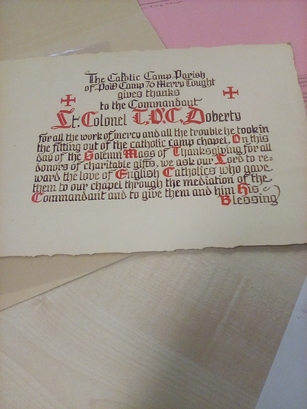 The Catholic Camp Parish
of PoW Camp 76 Merry Lought
gives thanks
to the Commandant
Lt. Colonel T.O.C. Doherty
for all the work of mercy and all the trouble he took in
the fitting out of the catholic camp chapel. On this
day of the Solemn Mass of Thanksgiving for all
donors of charitable gifts, we ask our Lord to re=
ward the love of English Catholics who gave
them to our chapel through the mediation of the
Commandant and to give them and him His
Blessing